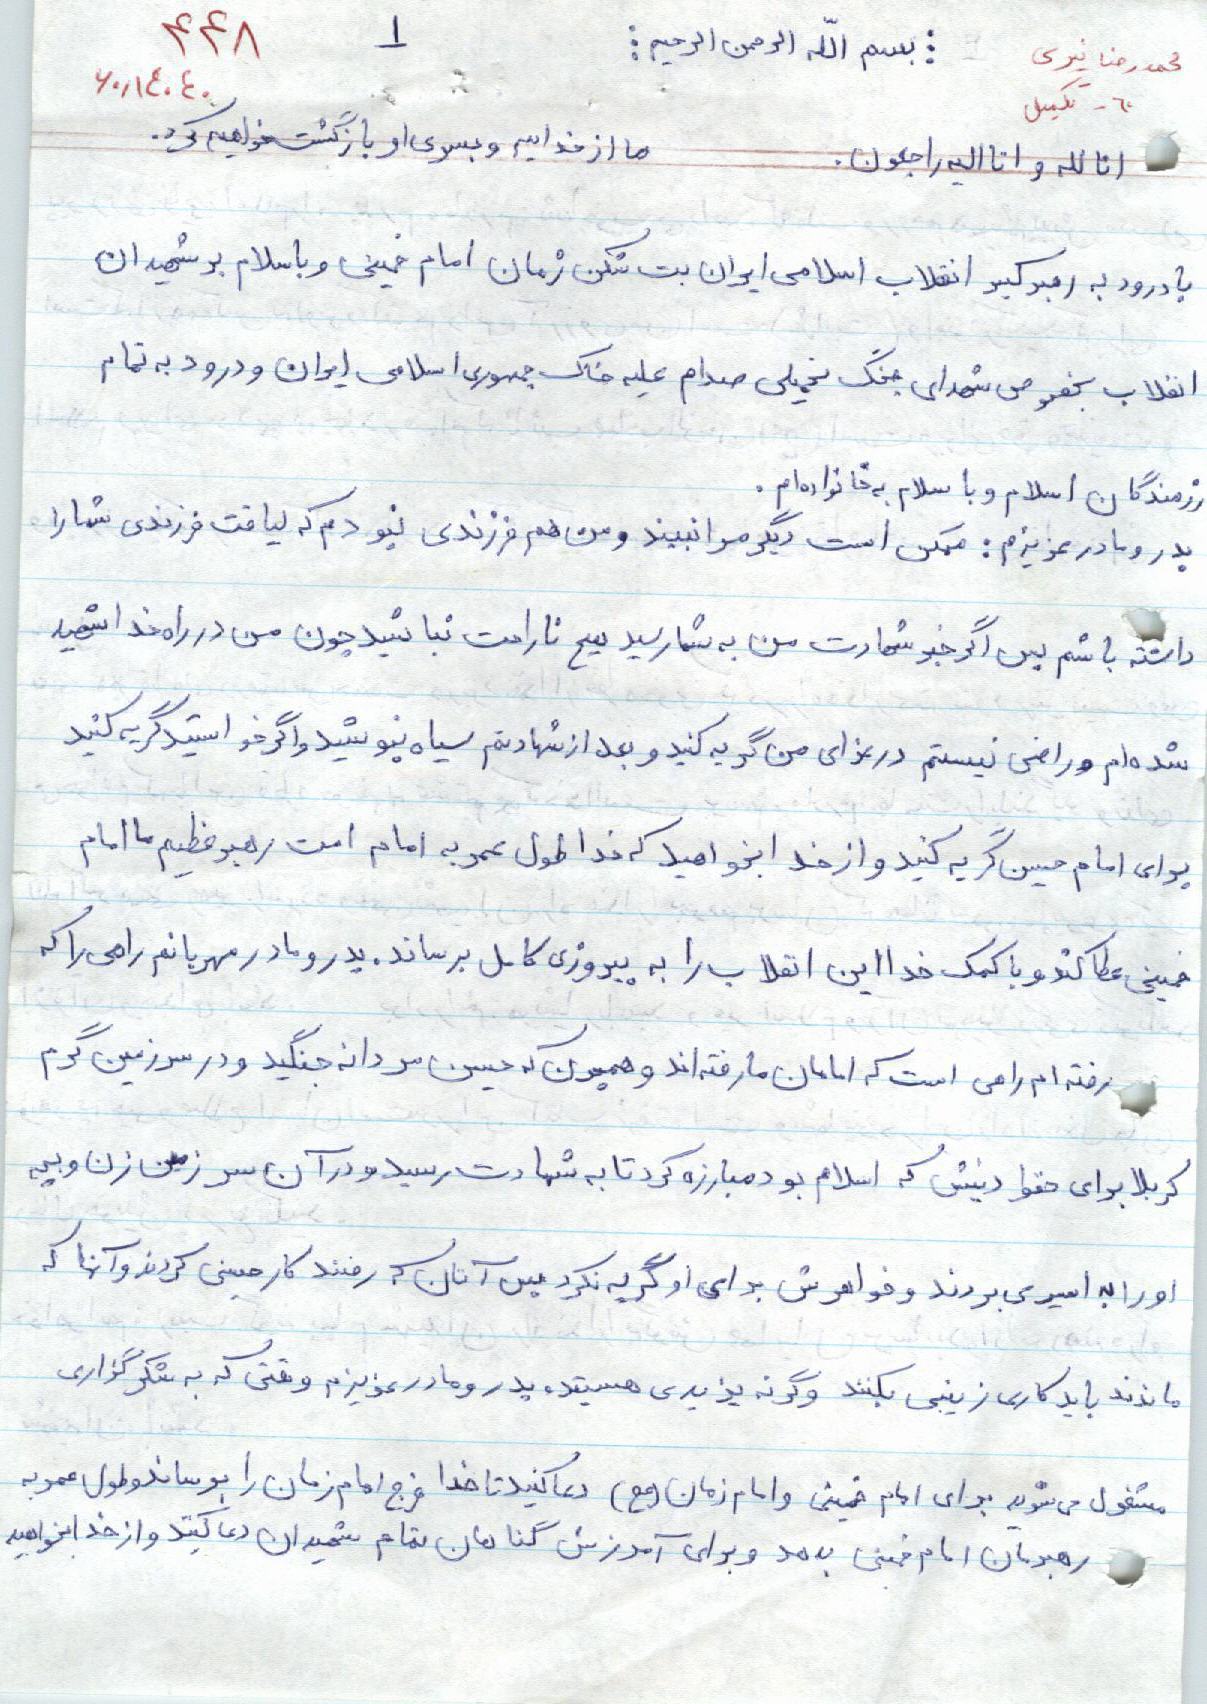 : بسم الله الرحمن الرحیم :
۱
۴۴۸
محمدرضا نیری
۶۰ - تکمیل
انا لله و انا الیه راجعون. ما از خداییم و بسوی او بازگشت خواهیم کرد.
با درود به رهبر کبیر انقلاب اسلامی ایران بت شکن زمان امام خمینی و با سلام بر شهیدان
انقلاب بخصوص شهدای جنگ تحمیلی صدام علیه خاک جمهوری اسلامی ایران و درود به تمام
رزمندگان اسلام و با سلام به خانواده‌ام.
پدر و مادر عزیزم: ممکن است دیگر مرا نبیند و من هم فرزندی نبودم که لیاقت فرزندی شما را
داشته باشم پس اگر خبر شهادت من به شما رسید هیچ ناراحت نباشید چون من در راه خدا شهید
شده‌ام و راضی نیستم در عزای من گریه کنید و بعد از شهادتم سیاه بپوشید و اگر خواستید گریه کنید
برای امام حسین گریه کنید و از خدا بخواهید که خدا طول عمر به امام امت رهبر عظیم ما امام
خمینی عطا کند و با کمک خدا این انقلاب را به پیروزی کامل برساند. پدر و مادر مهربانم راهی را که
رفته‌ام راهی است که امامان ما رفته‌اند و همچون که حسین مردانه جنگید و در سرزمین گرم
کربلا برای حفظ دینش که اسلام بود مبارزه کرد تا به شهادت رسید و در آن سرزمین زن و بچه
او را به اسیری بردند و خواهرش برای او گریه نکرد پس آنان که رفتند کار حسینی کردند و آنها که
ماندند باید کاری زینبی بکنند وگرنه یزیدی هستند. پدر و مادر عزیزم وقتی که به شکرگزاری
مشغول می‌شوید برای امام خمینی و امام زمان (عج) دعا کنید تا خدا فرج امام زمان را برساند و طول عمر به
رهبرمان امام خمینی بدهد و برای آمرزش گناهان تمام شهیدان دعا کنید و از خدا بخواهید